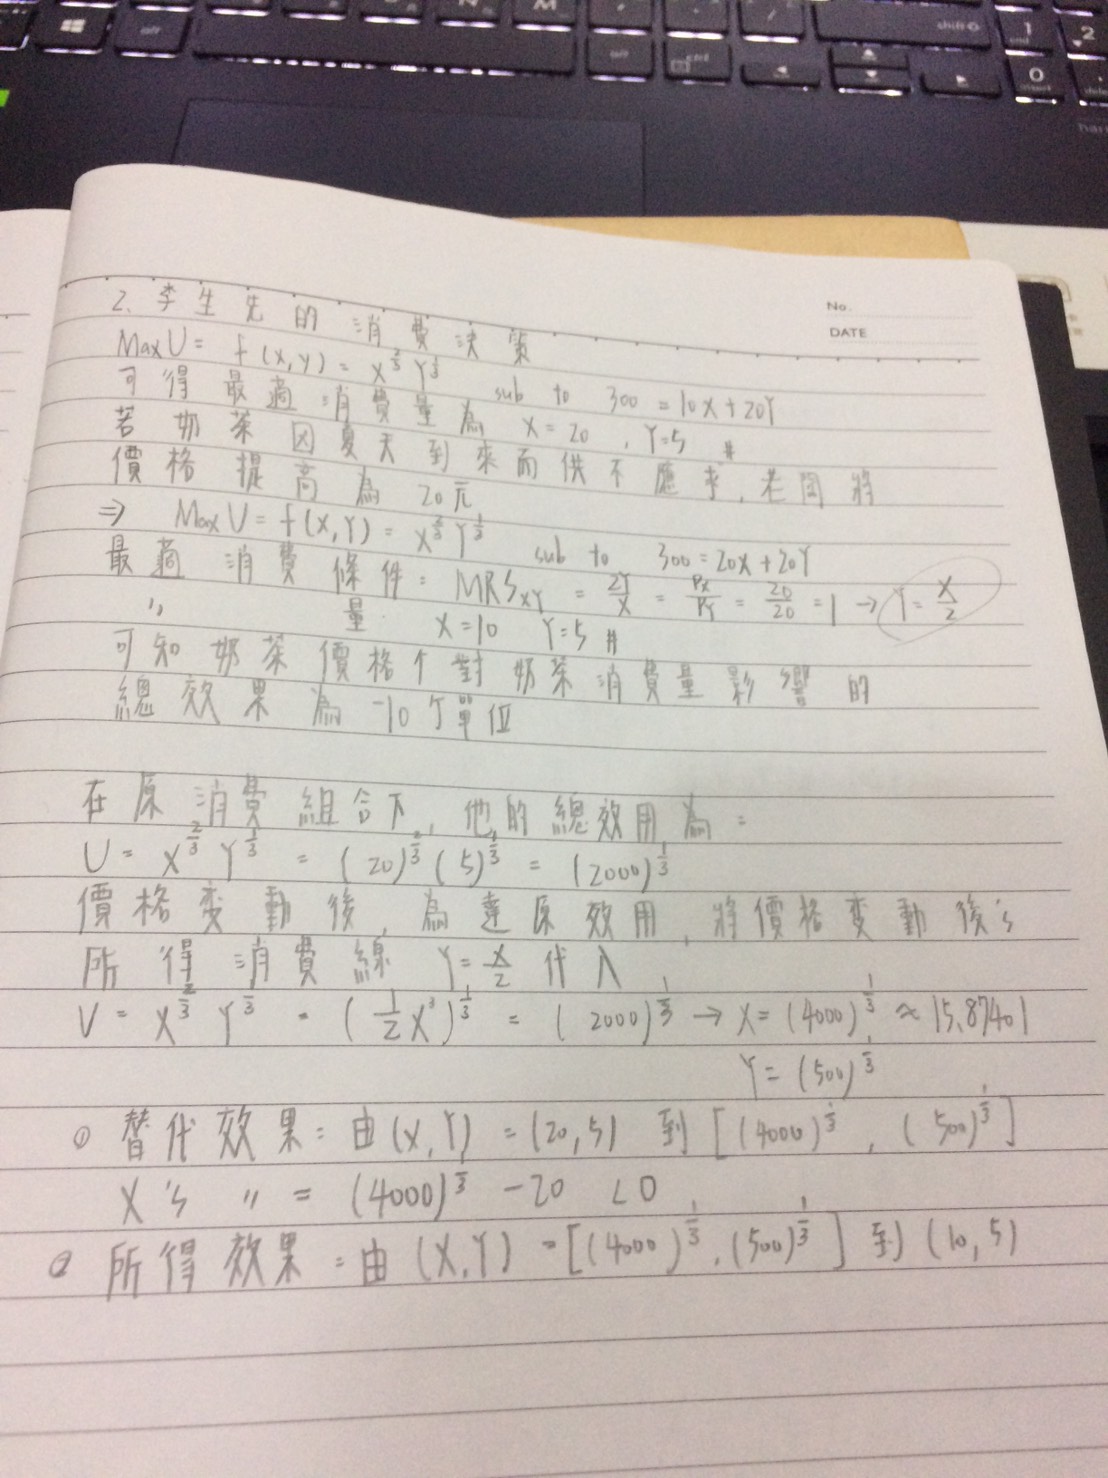 No.
DATE
2. 李生先的消費決策
Max U = f(x,y) = X^{2/3} Y^{1/3} sub to 300 = 10X + 20Y
可得最適消費量為 X = 20 , Y = 5 #
若奶茶因夏天到來而供不應求,老闆將
價格提高為 20元
⇒ Max U = f(X,Y) = X^{2/3} Y^{1/3} sub to 300 = 20X + 20Y
最適消費條件: MRS_{XY} = 2Y/X = Px/PY = 20/20 = 1 → Y = X/2
〃 量 X = 10 Y = 5 #
可知奶茶價格↑對奶茶消費量影響的
總效果為 -10個單位
在原消費組合下,他的總效用為:
U = X^{2/3} Y^{1/3} = (20)^{2/3} (5)^{1/3} = (2000)^{1/3}
價格變動後,為達原效用,將價格變動後's
所得消費線 Y = X/2 代入
U = X^{2/3} Y^{1/3} = (1/2 X^3)^{1/3} = (2000)^{1/3} → X = (4000)^{1/3} ≈ 15.87401
Y = (500)^{1/3}
① 替代效果: 由(X,Y) = (20,5) 到 [(4000)^{1/3}, (500)^{1/3}]
X's 〃 = (4000)^{1/3} - 20 < 0
② 所得效果: 由 (X,Y) = [(4000)^{1/3}, (500)^{1/3}] 到 (10,5)